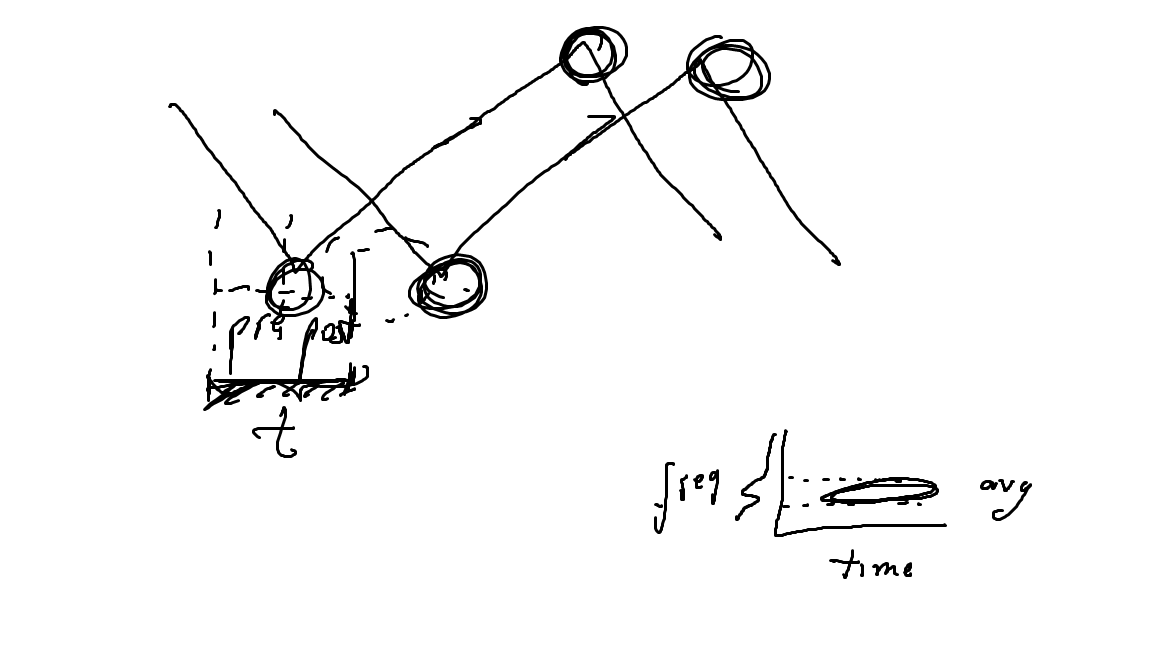 pre post
t
freq avg
time